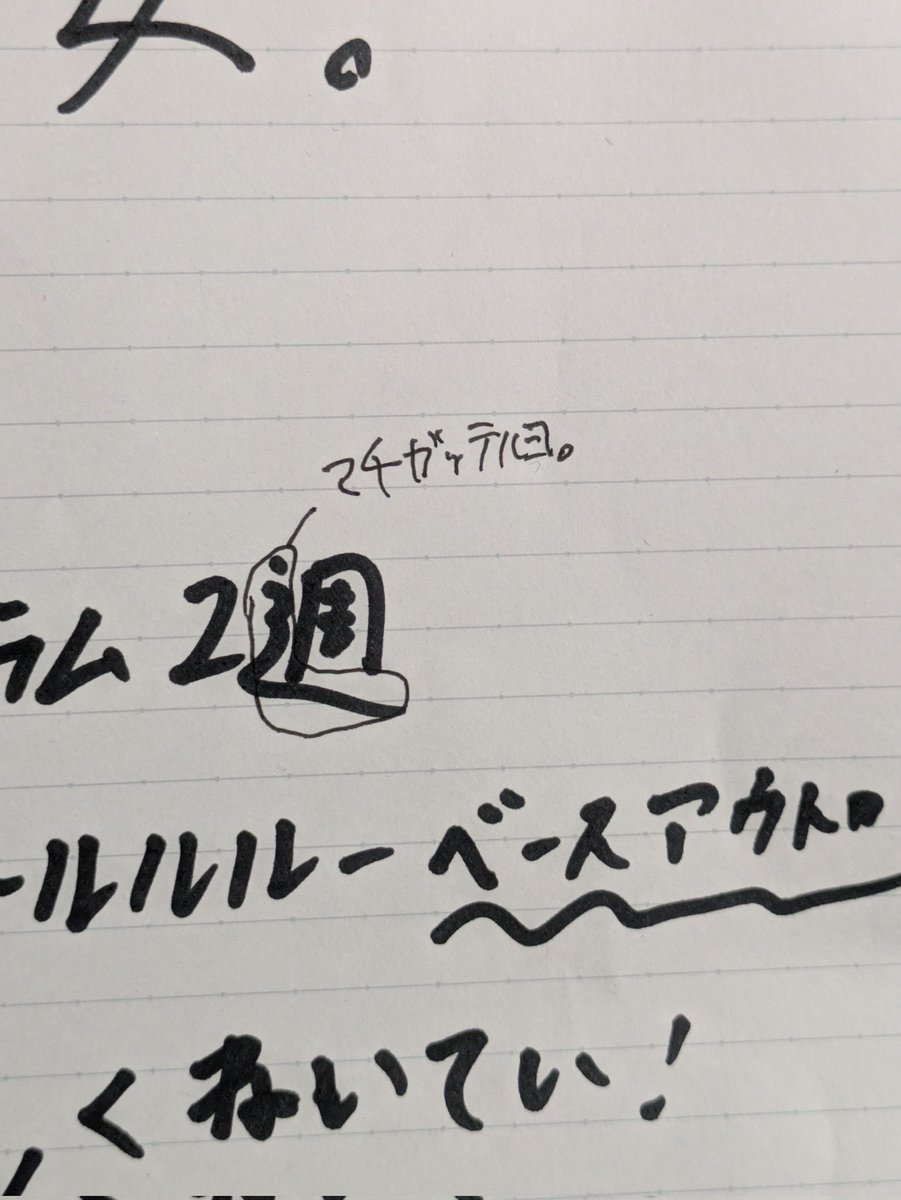 マチガッテルヨ。
ラム 2週
ールルルー ベースアウトロ
くねいてい!